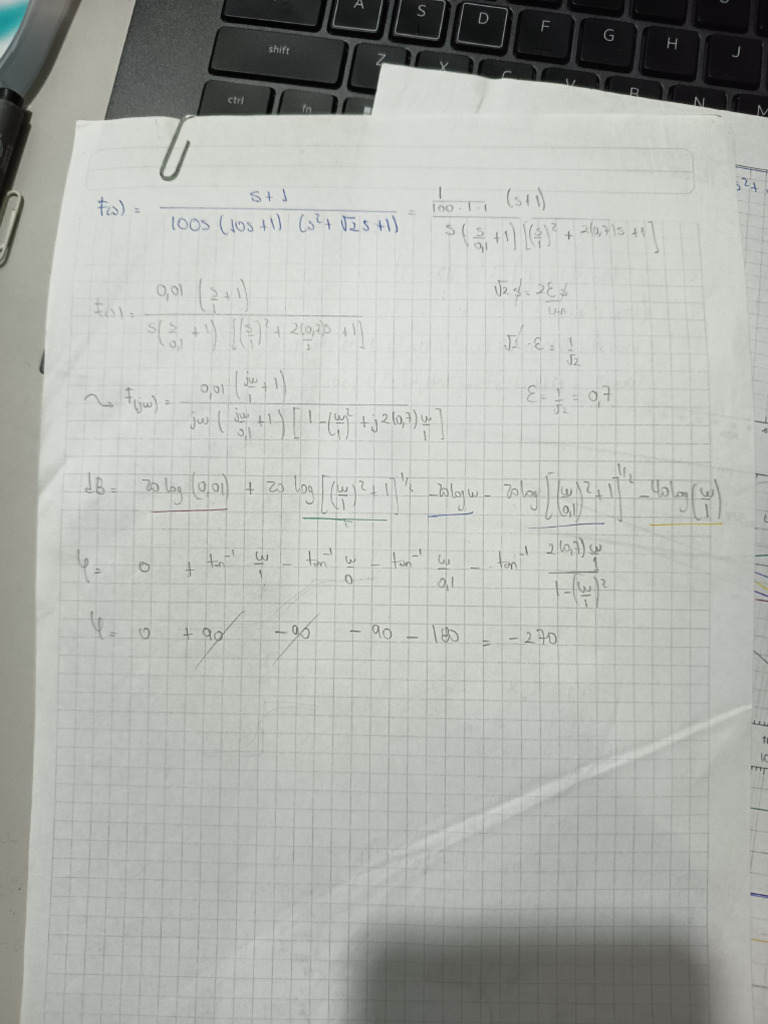 A S D F G H J
shift Z X C V B N M
ctrl fn
F(s) = s+1 / 100s (10s+1) (s²+√2s+1) = 1/100·1·1 (s+1) / s(s/0,1 +1) [(s/1)² + 2(0,7)s +1]
F(s) = 0,01 (s/1 +1) / s(s/0,1 +1) [(s/1)² + 2(0,7)s/1 +1]
√2 s = 2ξs/ωn
√2 · ξ = 1/√2
ξ = 1/√2 = 0,7
F(jω) = 0,01 (jω/1 +1) / jω (jω/0,1 +1) [1-(ω/1)² + j2(0,7)ω/1]
dB = 20 log (0,01) + 20 log [(ω/1)²+1]^1/2 -20logω - 20log [(ω/0,1)²+1]^1/2 -40log(ω/1)
φ = 0 + tan⁻¹ ω/1 - tan⁻¹ ω/0 - tan⁻¹ ω/0,1 - tan⁻¹ 2(0,7)ω/1 / 1-(ω/1)²
φ = 0 +90 -90 -90 - 180 = -270